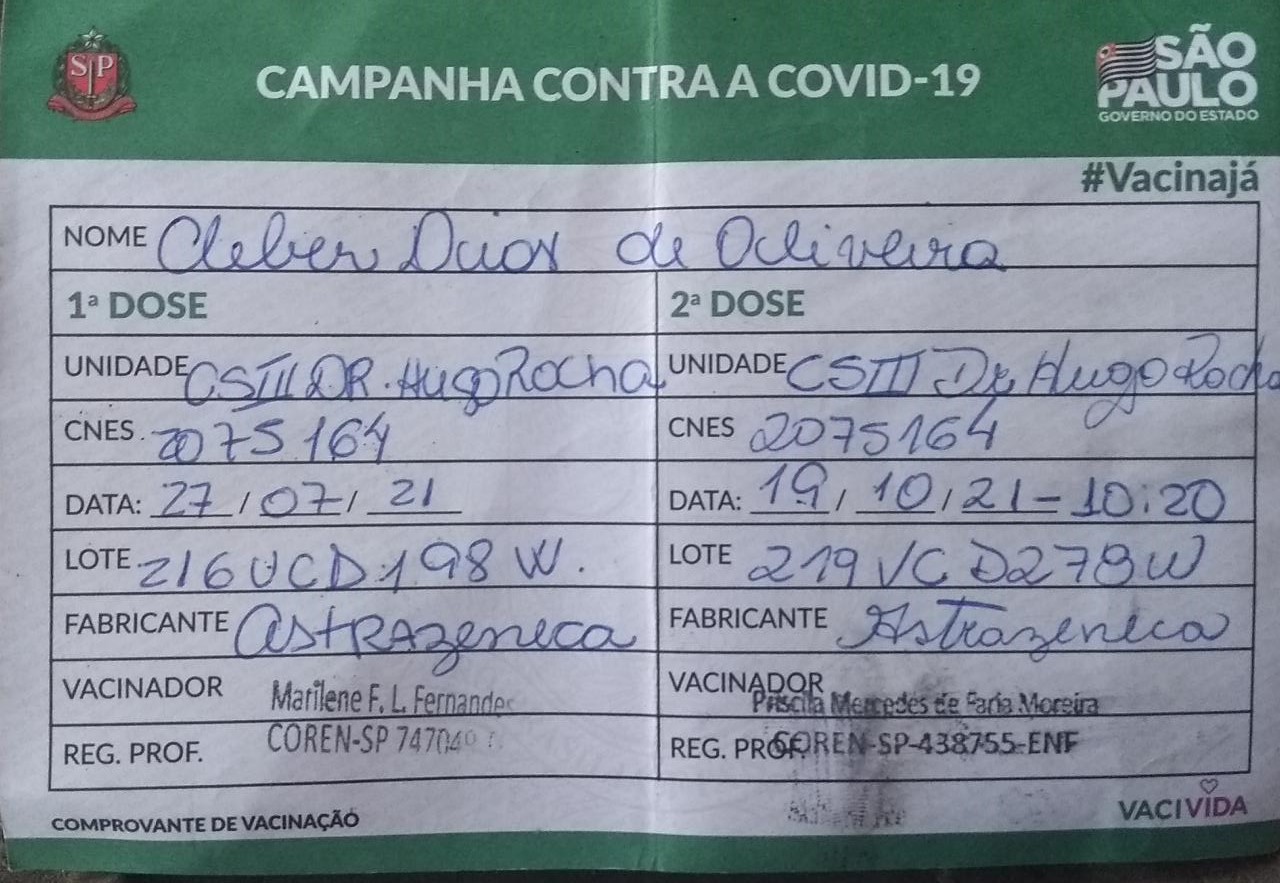 SP
CAMPANHA CONTRA A COVID-19
SÃO PAULO
GOVERNO DO ESTADO
#Vacinajá
NOME Cleber Dias de Oliveira
1ª DOSE 2ª DOSE
UNIDADE CSIII DR. Hugo Rocha UNIDADE CSIII Dr Hugo Rocha
CNES. 2075164 CNES 2075164
DATA: 27/07/21 DATA: 19/10/21-10:20
LOTE 216VCD198W. LOTE 219VCD279W
FABRICANTE AstRAzeneca FABRICANTE Astrazeneca
VACINADOR Marilene F. L. Fernandes VACINADOR Priscila Mercedes de Faria Moreira
REG. PROF. COREN-SP REG. PROF. COREN-SP-438755-ENF
COMPROVANTE DE VACINAÇÃO VACIVIDA